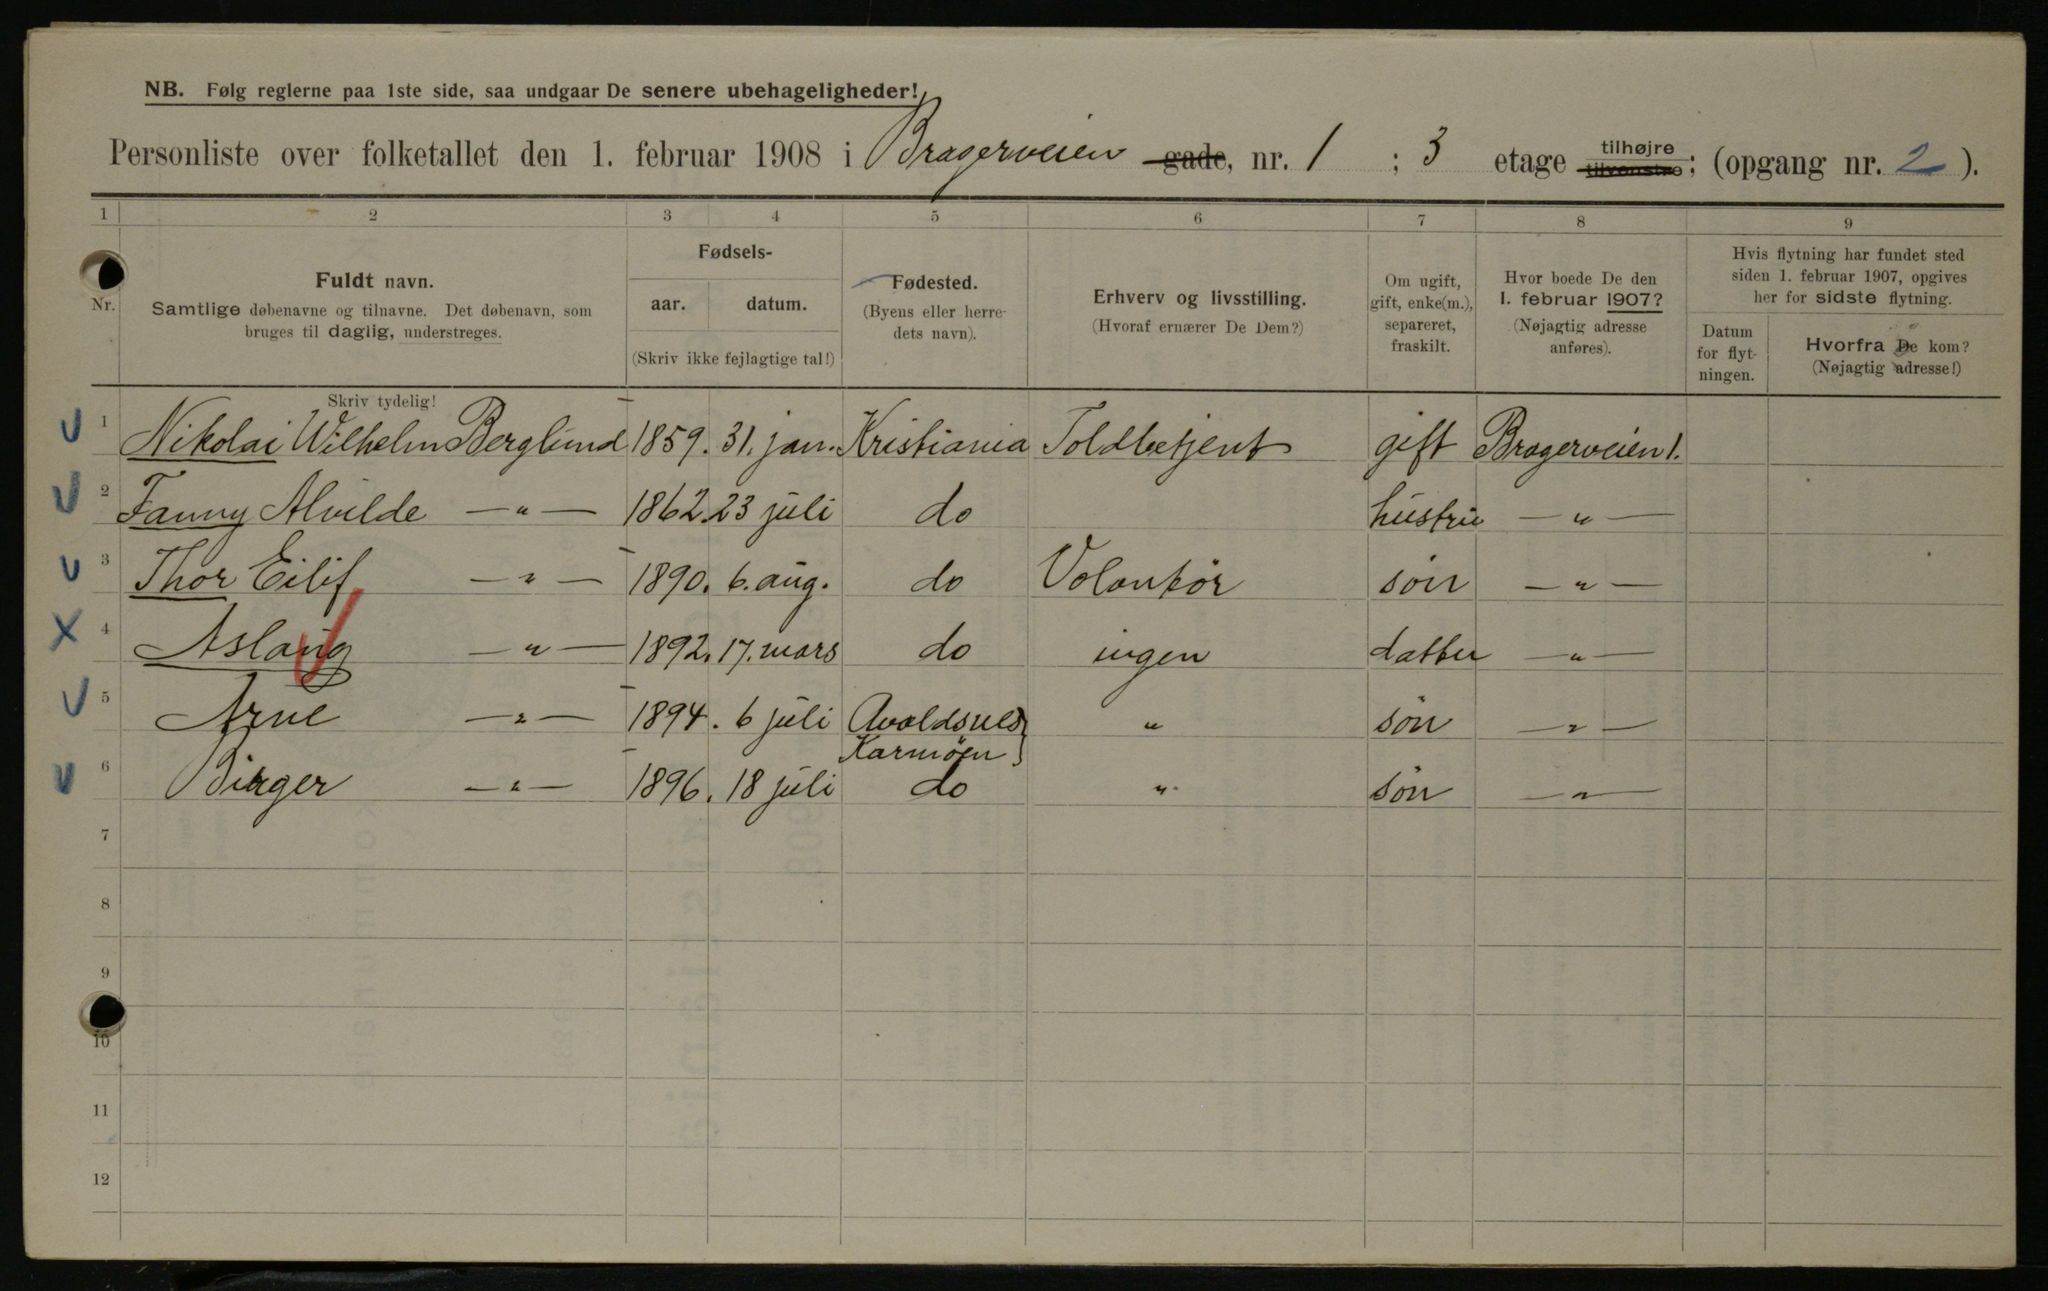 NB. Følg reglerne paa 1ste side, saa undgaar De senere ubehageligheder!
Personliste over folketallet den 1. februar 1908 i Bragerveien gade, nr. 1 ; 3 etage tilhøjre tilvenstre; (opgang nr. 2 ).
1 2 3 4 5 6 7 8 9
Nr.
Fuldt navn.
Samtlige døbenavne og tilnavne. Det døbenavn, som
bruges til daglig, understreges.
Fødsels-
aar. datum.
(Skriv ikke fejlagtige tal!)
Fødested.
(Byens eller herre-
dets navn).
Erhverv og livsstilling.
(Hvoraf ernærer De Dem?)
Om ugift,
gift, enke(m.),
separeret,
fraskilt.
Hvor boede De den
1. februar 1907?
(Nøjagtig adresse
anføres).
Hvis flytning har fundet sted
siden 1. februar 1907, opgives
her for sidste flytning.
Datum
for flyt-
ningen.
Hvorfra De kom?
(Nøjagtig adresse!)
Skriv tydelig!
1 Nikolai Wilhelm Berglund 1859. 31. jan. Kristiania Toldbetjent gift Bragerveien 1.
2 Fanny Alvilde — " — 1862. 23 juli do hustru — " —
3 Thor Eilif — " — 1890. 6. aug. do Volontør søn — " —
4 Aslaug — " — 1892. 17. mars do ingen datter — " —
5 Arne — " — 1894. 6 juli Avaldsnes " søn — " —
Karmöen
6 Birger — " — 1896. 18 juli do " søn — " —
7
8
9
10
11
12